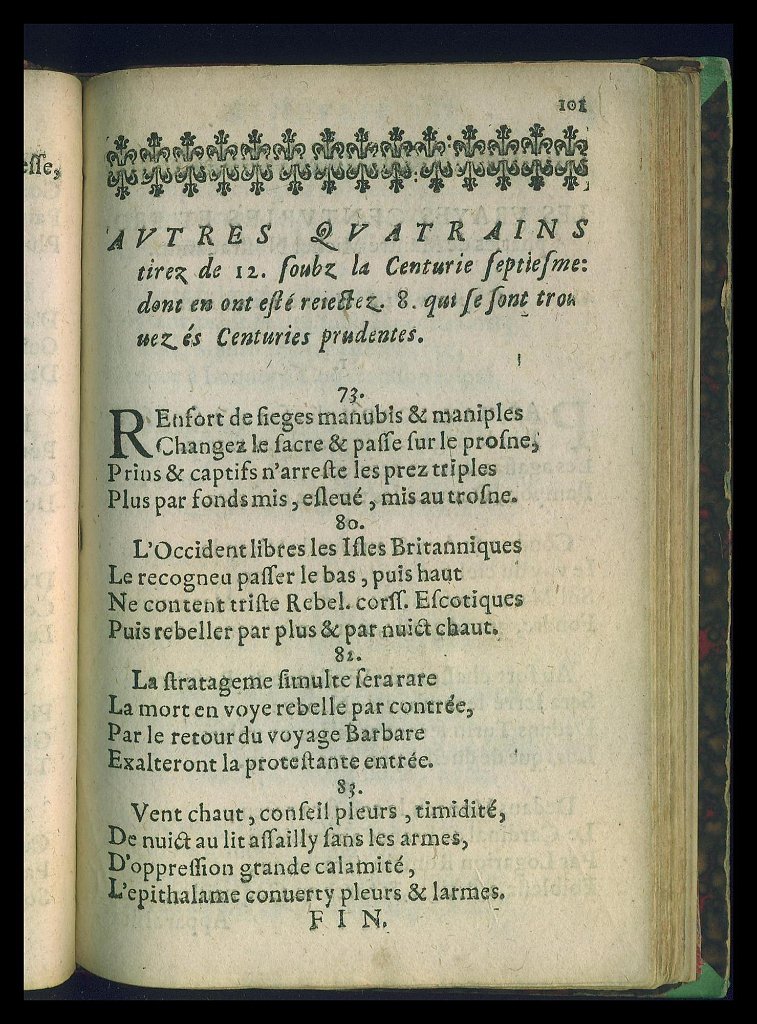 esse,
101
AVTRES QVATRAINS
tirez de 12. soubz la Centurie septiesme:
dont en ont esté reiectez. 8. qui se sont trou
uez és Centuries prudentes.
73.
REnfort de sieges manubis & maniples
Changez le sacre & passe sur le prosne,
Prins & captifs n'arreste les prez triples
Plus par fonds mis, esleué, mis au trosne.
80.
L'Occident libres les Isles Britanniques
Le recogneu passer le bas, puis haut
Ne content triste Rebel. corss. Escotiques
Puis rebeller par plus & par nuict chaut.
82.
La stratageme simulte sera rare
La mort en voye rebelle par contrée,
Par le retour du voyage Barbare
Exalteront la protestante entrée.
83.
Vent chaut, conseil pleurs, timidité,
De nuict au lit assailly sans les armes,
D'oppression grande calamité,
L'epithalame conuerty pleurs & larmes.
FIN.